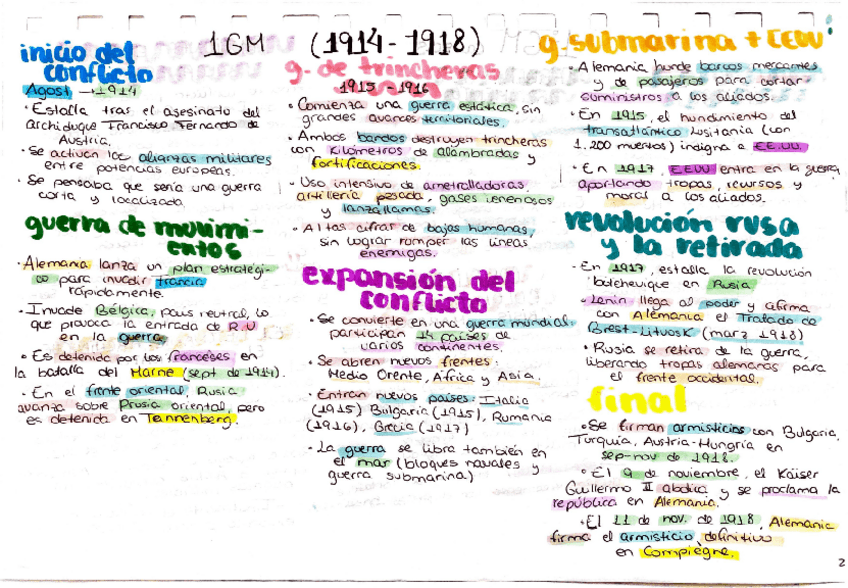 1GM (1914-1918)
inicio del
conflicto
Agost → 1914
· Estalla tras el asesinato del
archiduque Francisco Fernando de
Austria.
· Se activan las alianzas militares
entre potencias europeas.
· Se pensaba que sería una guerra
corta y localizada
guerra de movimi-
entos
· Alemania lanza un plan estratégi-
co para invadir Francia
rápidamente.
· Invade Bélgica, país neutral, lo
que provoca la entrada de R.U
en la guerra
· Es detenida por los franceses en
la batalla del Marne (sept de 1914).
· En el frente oriental, Rusia
avanza sobre Prusia oriental, pero
es detenida en Tannenberg.
g. de trincheras
1915 - 1916
· Comienza una guerra estática, sin
grandes avances territoriales.
· Ambos bandos destruyen trincheras
con kilómetros de alambradas y
fortificaciones.
· Uso intensivo de ametralladoras,
artillería pesada, gases venenosos
y lanzallamas.
· Altas cifras de bajas humanas,
sin lograr romper las líneas
enemigas.
expansión del
conflicto
· Se convierte en una guerra mundial:
participan 14 países de
varios continentes.
· Se abren nuevos frentes:
Medio Orente, África y Asia.
· Entran nuevos países: Italia
(1915) Bulgaria (1915), Rumania
(1916), Grecia (1917)
· La guerra se libra también en
el mar (bloques navales y
guerra submarina)
g. submarina + EEUU
· Alemania hunde barcos mercantes
y de pasajeros para cortar
suministros a los aliados.
· En 1915, el hundimiento del
transatlántico Lusitania (con
1.200 muertos) indigna a EE.UU.
· En 1917, EEUU entra en la guerra,
aportando tropas, recursos y
moral a los aliados.
revolución rusa
y la retirada
· En 1917, estalla la revolución
bolchevique en Rusia
· Lenin llega al poder y afirma
con Alemania el Tratado de
Brest-Litvosk (marz 1918)
· Rusia se retira de la guerra,
liberando tropas alemanas para
el frente occidental.
final
· Se firman armisticios con Bulgaria,
Turquía, Austria-Hungría en
sep-nov de 1918.
· El 9 de noviembre, el Káiser
Guillermo II abdica y se proclama la
república en Alemania.
· El 11 de nov. de 1918, Alemania
firma el armisticio definitivo
en Compiègne.
2